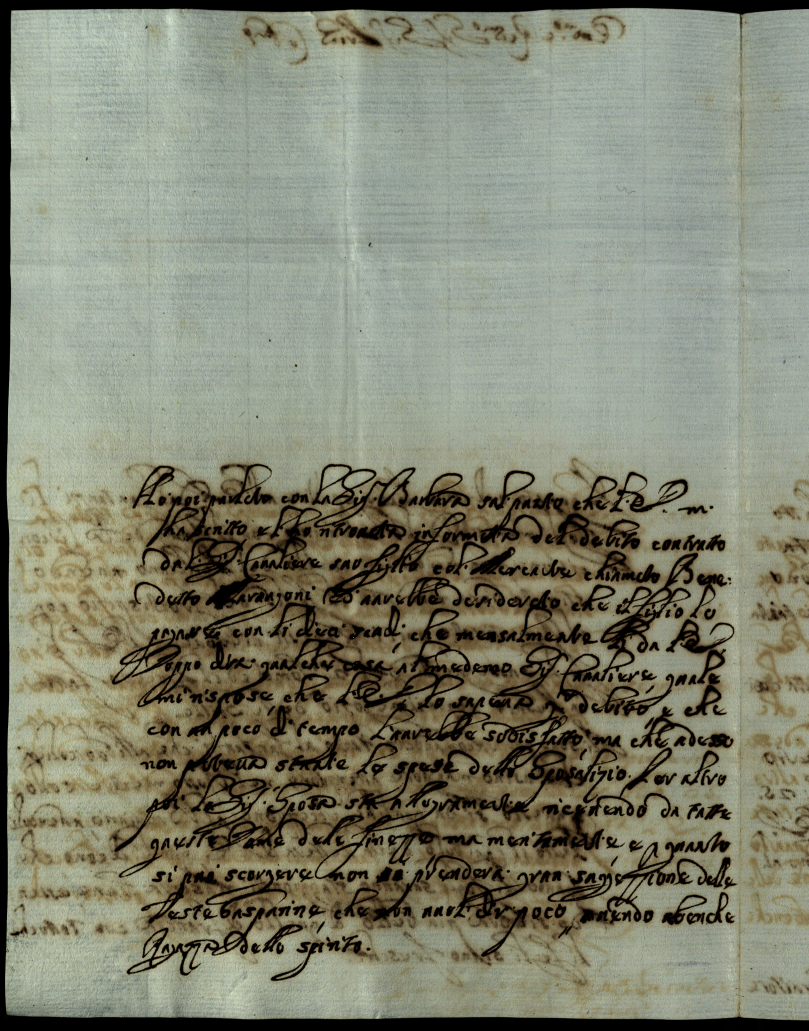 Ho poi parlato con la Sig.ra Barbara sul punto che l'E. V. m.
ha scritto e l'ho ritrovata informata del debito contratto
dal S.r Cavaliere suo figlio col Mercante chiamato Bene:
detto Marangoni ed avrebbe desiderato che il figlio lo
pagare con li dieci scudi che mensalmente da l'E. V.
Doppo dissi qualche cosa al medemo Sig. Cavaliere quale
mi rispose che l'E. V. lo sapeva q.to debito, e che
con un poco di tempo l'avrebbe sodisfatto, ma che adesso
non poteva stante le spese dello Sposalizio. Per altro
poi la Sig. Sposa sta allegramente ricevendo da tutte
queste Dame delle finezze ma mentre e p quanto
si può scorgere non prenderà gran sugezzione delle
Teste che non vuol dir poco, avendo abenche
Ragazza dello spirito.